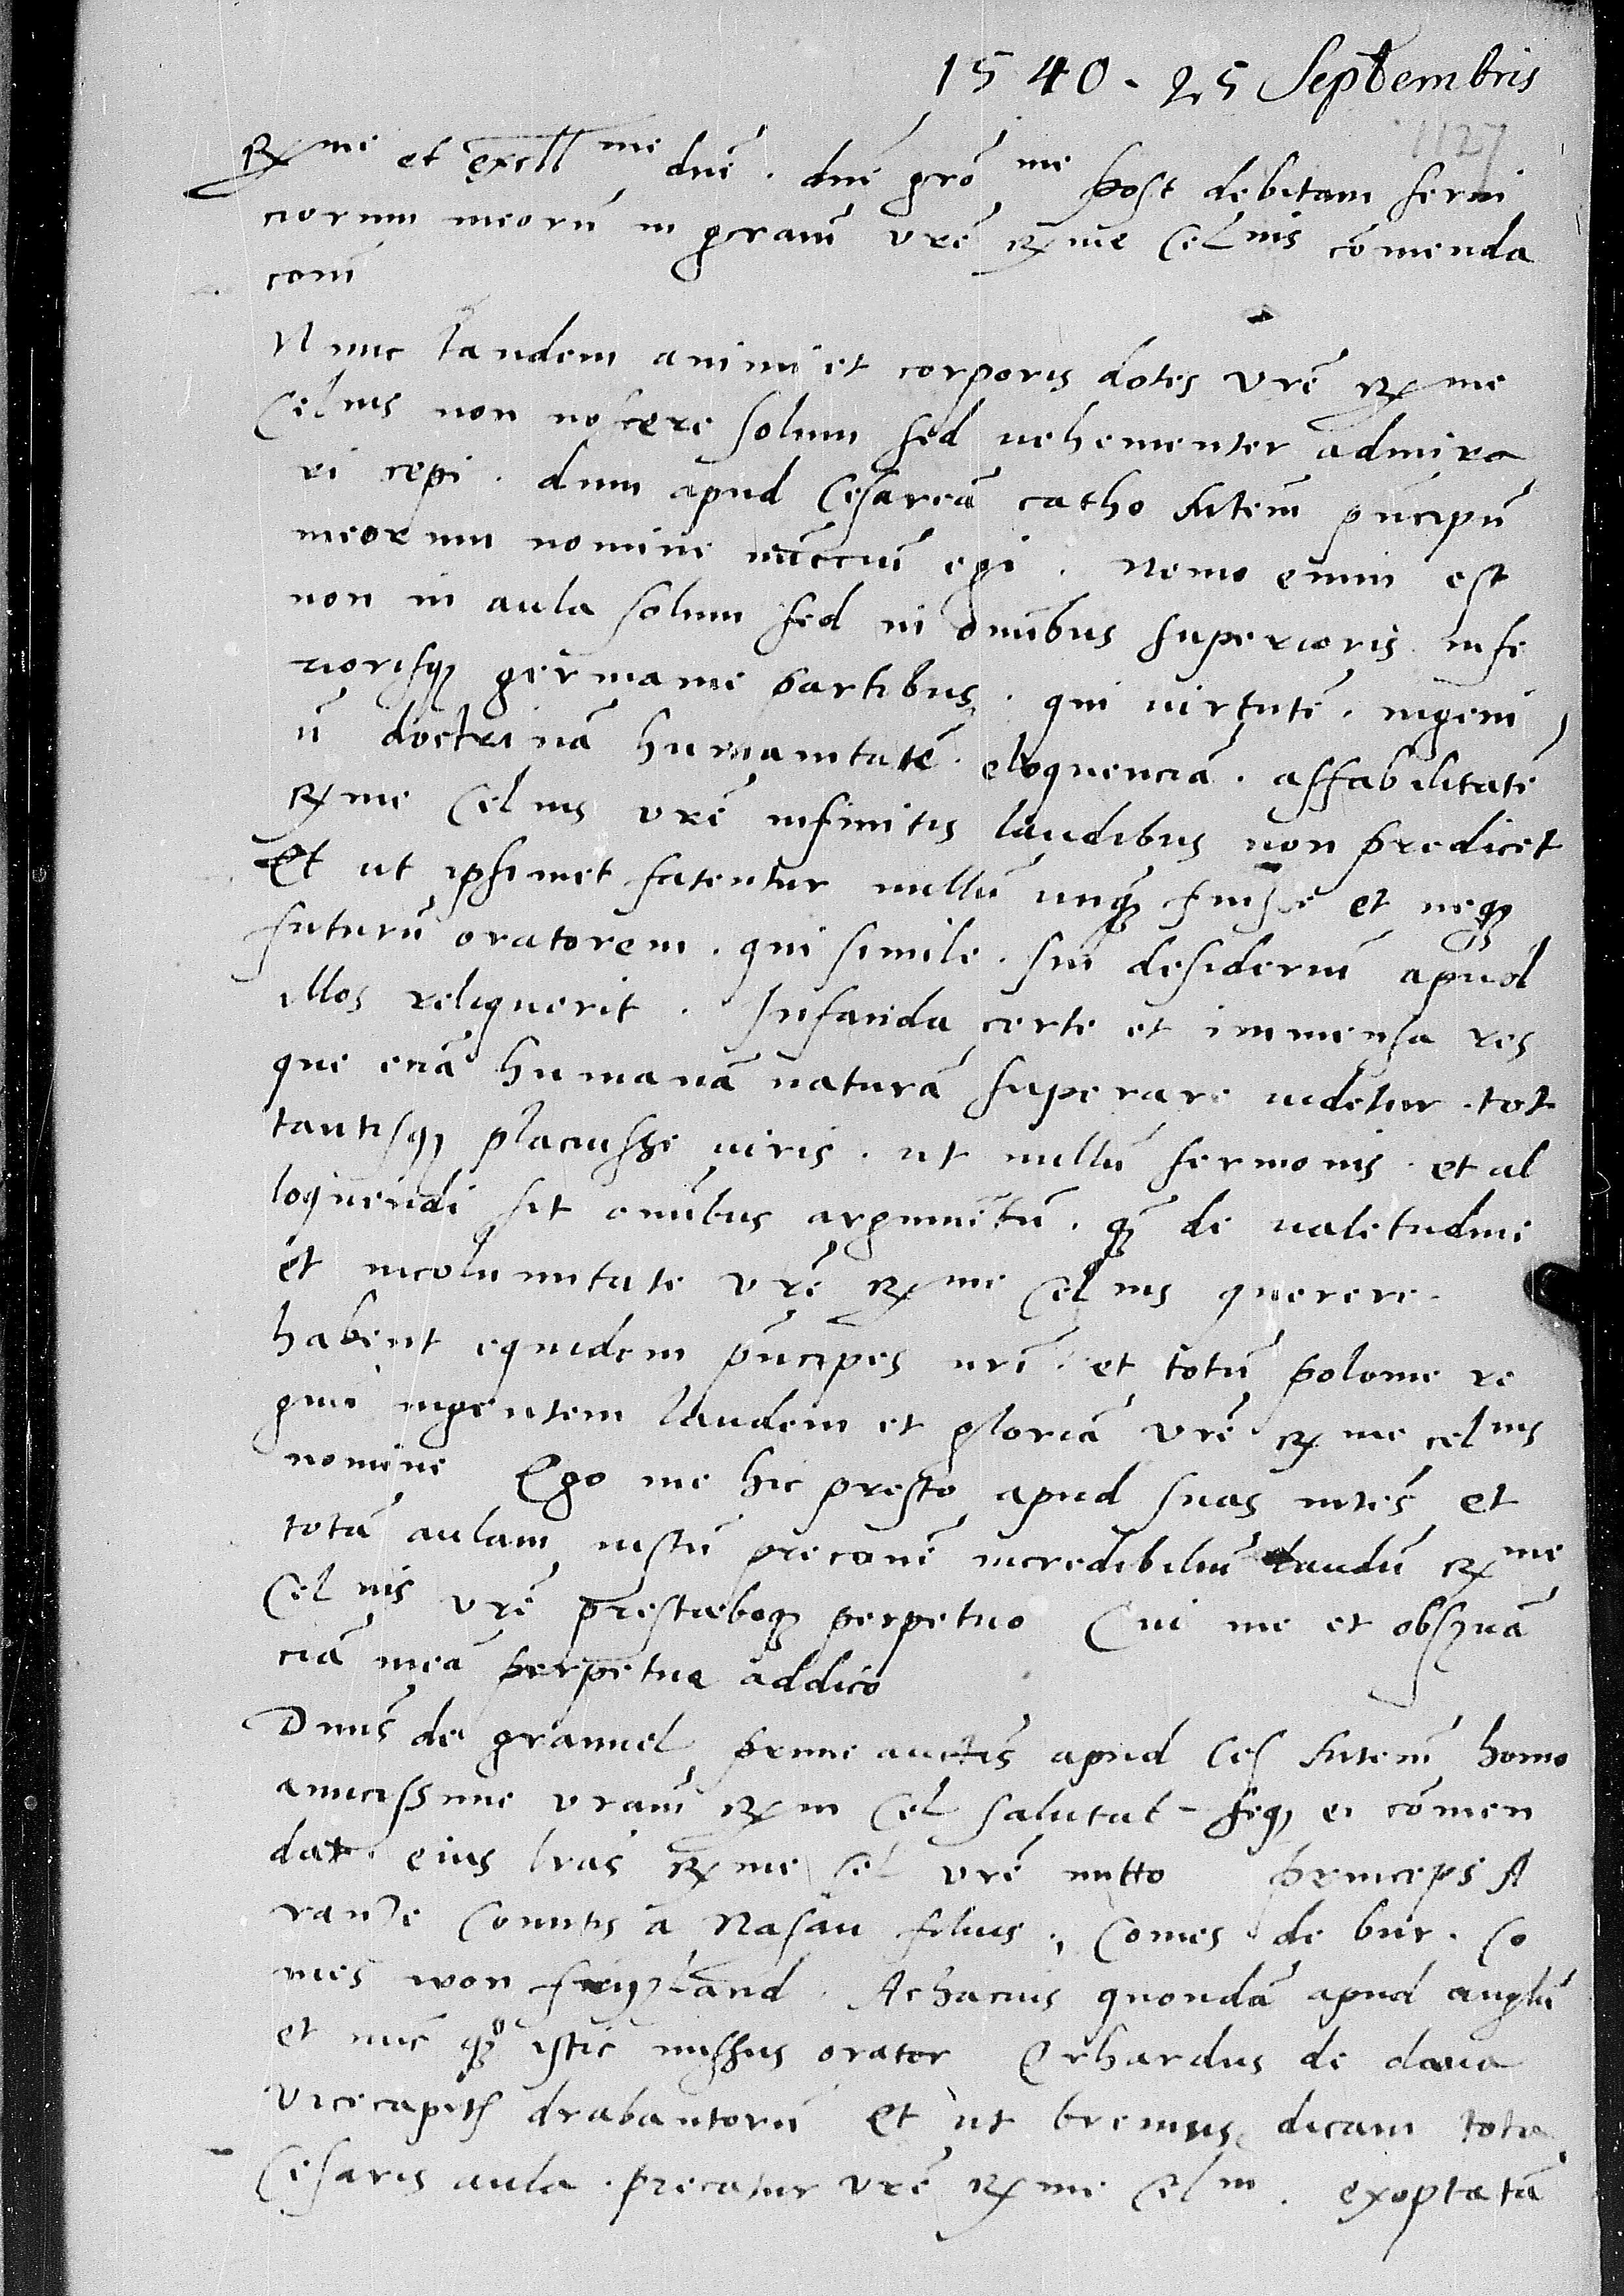 1540 · 25 Septembris
1127
R me et Excell me dne . dne gro me post debitam servi
ciorum meorū in graciā vre R me Cel nis cōmenda
coni
Nunc tandem animi et corporis dotes vrē R me
Cel nis non noscere solum sed vehementer admira
ri cepi . dum apud Cesareā catho Mtem pncipū
meorum nomine nunccium egi . Nemo enim est
non in aula solum sed in omibus superioris infe
riorisqz germanie partibus . qui virtutē . ingeni
ū doctrinā humanitatē . eloquenciā . affabilitatē
R me Cel nis vrē infinitis laudibus non predicet
Et ut ipsimet fatentur nullū unqz fuisse et neqz
futurū oratorem . qui simile . sui desideriū apud
illos reliquerit . Infanda certe et immensa res
que eciā humanā naturā superare videtur . tot
tantisqz placuisse viris . ut nullū sermonis . et al
loquendi sit omibus argumētū . qz de valetudine
et incolumitate vrē R me Cel nis querere .
habent equidem pncipes nri . et totū polonie re
gnū ingentem laudem et gloriā vrē R me cel nis
nomine Ego me hic presto apud suas mtes et
totā aulam iustū preconē incrediblium laudū R me
Cel nis vrē prestaboqz perpetuo Cui me et obsqua
ciā meā perpetue addico
Dnus de granuel prime auctis apud Ces Mtem homo
amicissime vram R m Cel salutat – seqz ei cōmen
dat . eius lras R me Cel vrē mitto princeps A
ranie Comitis a Nasau filius . Comes de bur . Co
mes von Achacius quondā apud anglū
et nūc qz istic missus orator Erhardus de
vicecapits drabantorū Et ut brevius dicam tota
Cesaris aula . precatur vrē R me Cel ni . exoptatā